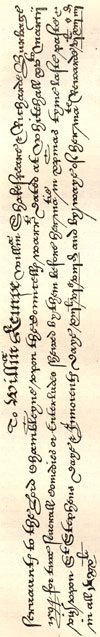 To Willm Kempe Willm Shakespeare & Richarde Burbage
servaunts to the Lord Chamb̃leyne upon the Councelles warrt dated at Whitehall xvth Marcij
1594 for twoe severall comedies or Enterludes shewed by them before her matie in xpmas tyme laste paste
viz upon St Stephens daye & Innocents daye xiijli vjs viijd and by waye of her mats Rewarde
in all xxli